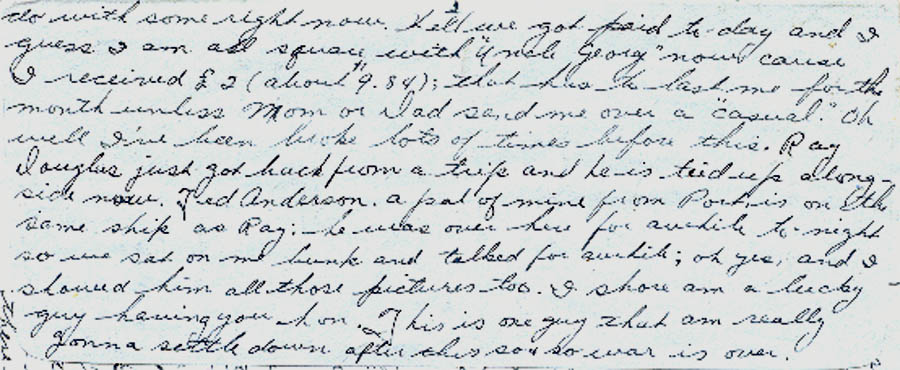 do with some right now. Well we got paid to-day and I
guess I am all square with "Uncle Georg" now cause
I received £2 (about $9.84); that has to last me for the
month unless Mom or Dad send me over a "casual." Oh
well I've been broke lots of times before this. Ray
Douglas just got back from a trip and he is tied up along-
side now. Ted Anderson, a pal of mine from Port, is on the
same ship as Ray; he was over here for awhile to-night
so we sat on my bunk and talked for awhile; oh yes, and I
showed him all those pictures too. I shore am a lucky
guy having you hon. This is one guy that am really
gonna settle down after this war is over.